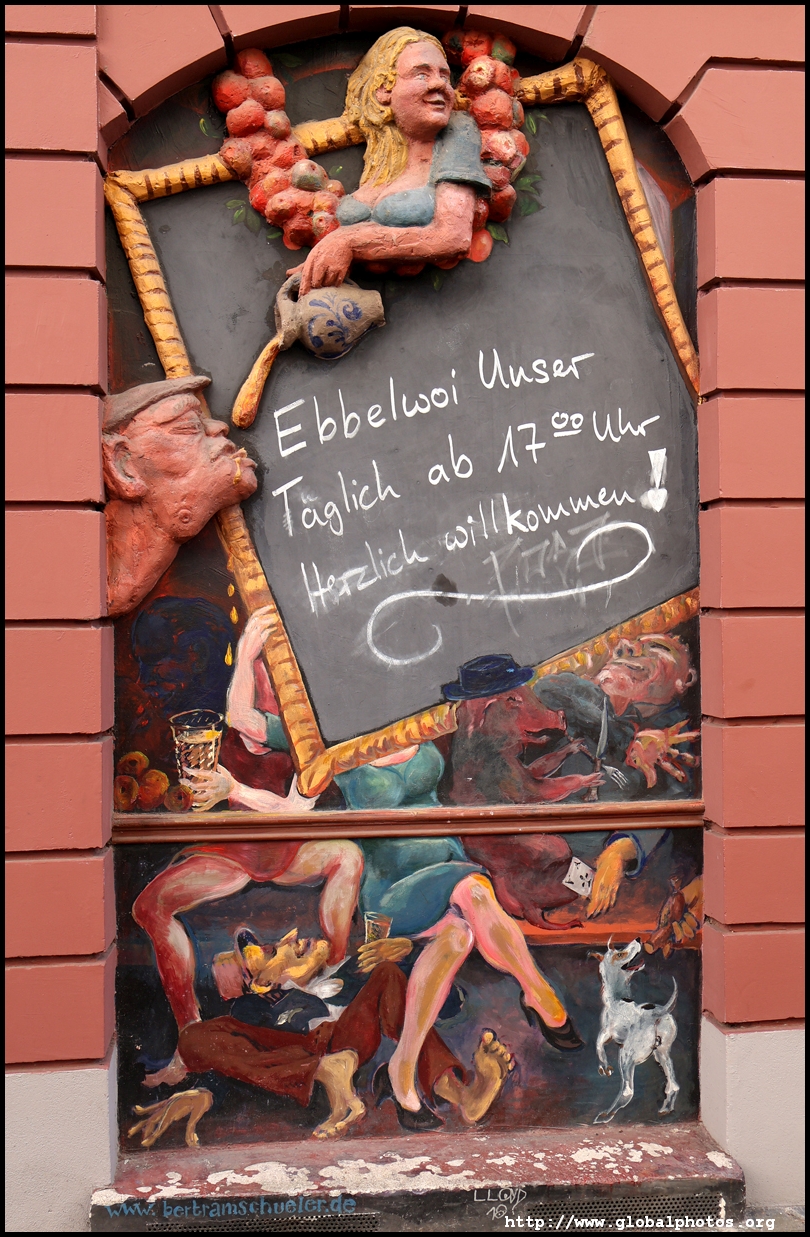 Ebbelwoi Unser
Täglich ab 17⁰⁰ Uhr
Herzlich willkommen!
www.bertramschueler.de
LLOYD
http://www.globalphotos.org